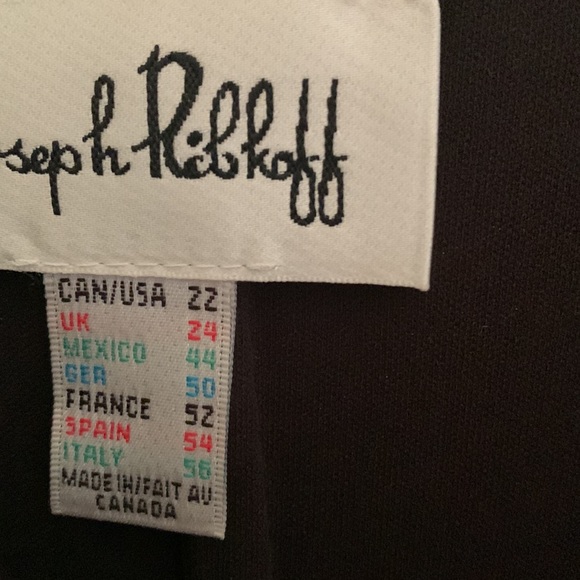 seph Ribkoff
CAN/USA 22
UK 24
MEXICO 44
GER 50
FRANCE 52
SPAIN 54
ITALY 56
MADE IN/FAIT AU
CANADA